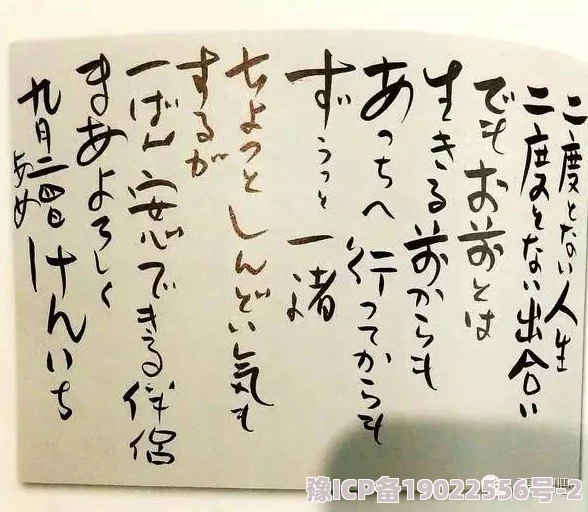 二度とない人生
二度とない出合い
でもお前とは
生きる前からも
あっちへ行ってからも
ずうっと一緒
ちょっとしんどい気も
するが
一ばん安心できる伴侶
まあよろしく
九月二四日
あめ
けんいち
豫ICP备19022556号-2